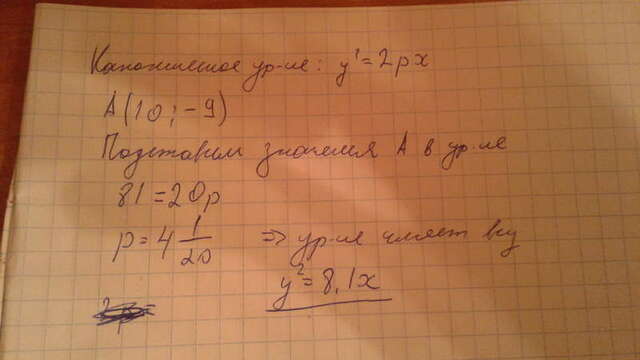 Каноническое ур-ие: y² = 2px
A(10; -9)
Подставим значения A в ур-ие
81 = 20p
p = 4 1/20 ⇒ ур-ие имеет вид
y² = 8,1x